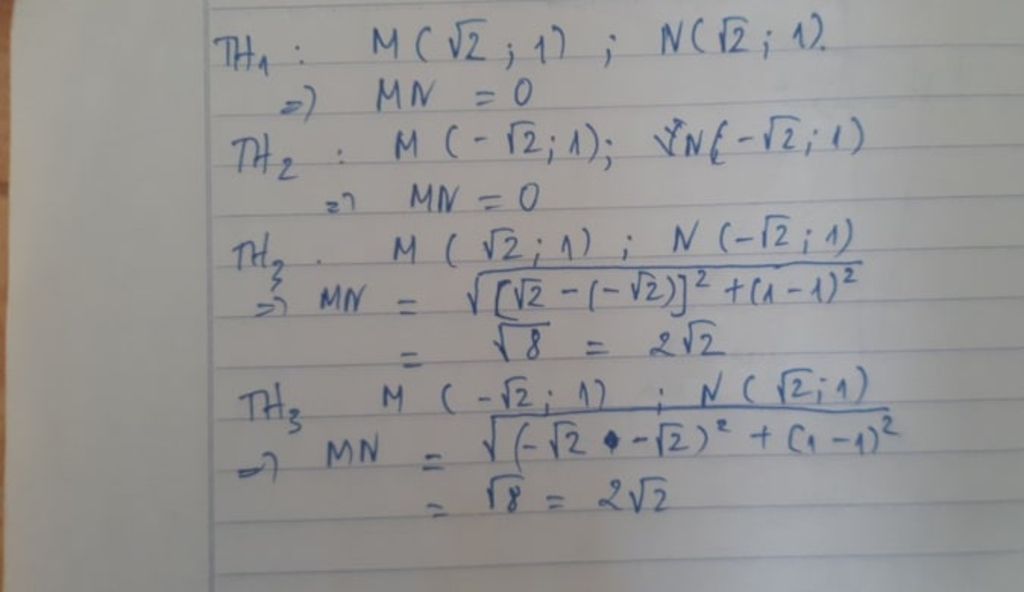 TH₁ : M(√2 ; 1) ; N(√2 ; 1).
=> MN = 0
TH₂ : M (-√2 ; 1) ; N(-√2 ; 1)
=> MN = 0
TH₃ . M ( √2 ; 1) ; N (-√2 ; 1)
=> MN = √([√2 - (-√2)]² + (1 - 1)²)
= √8 = 2√2
TH₃ M (-√2 ; 1) ; N ( √2 ; 1)
=> MN = √((-√2 - √2)² + (1 - 1)²)
= √8 = 2√2